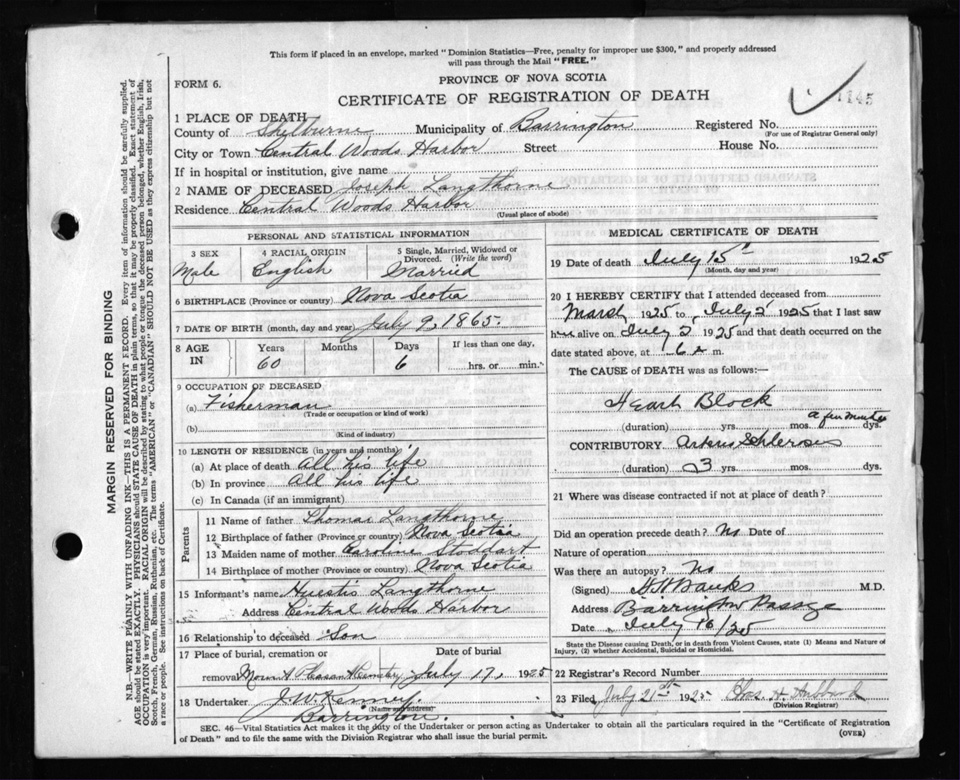 This form if placed in an envelope, marked "Dominion Statistics—Free, penalty for improper use $300," and properly addressed
will pass through the Mail "FREE."
FORM 6.
PROVINCE OF NOVA SCOTIA
1145
CERTIFICATE OF REGISTRATION OF DEATH
1 PLACE OF DEATH
County of Shelburne Municipality of Barrington Registered No.
(For use of Registrar General only)
City or Town Central Woods Harbor Street House No.
If in hospital or institution, give name
2 NAME OF DECEASED Joseph Langthorne
Residence Central Woods Harbor
(Usual place of abode)
PERSONAL AND STATISTICAL INFORMATION
3 SEX 4 RACIAL ORIGIN 5 Single, Married, Widowed or
Divorced. (Write the word)
Male English Married
6 BIRTHPLACE (Province or country) Nova Scotia
7 DATE OF BIRTH (month, day and year) July 9, 1865.
8 AGE IN Years Months Days If less than one day,
60 6 hrs. or min.
9 OCCUPATION OF DECEASED
(a) Fisherman
(Trade or occupation or kind of work)
(b)
(Kind of industry)
10 LENGTH OF RESIDENCE (in years and months)
(a) At place of death All his life
(b) In province All his life
(c) In Canada (if an immigrant)
Parents
11 Name of father Thomas Langthorne
12 Birthplace of father (Province or country) Nova Scotia
13 Maiden name of mother Caroline Stoddart
14 Birthplace of mother (Province or country) Nova Scotia
15 Informant's name Huestis Langthorne
Address Central Woods Harbor
16 Relationship to deceased Son
17 Place of burial, cremation or Date of burial
removal Mount Pleasant Cemetery July 17, 1925
18 Undertaker J. W. Kenney.
(Name and address)
Barrington.
MEDICAL CERTIFICATE OF DEATH
19 Date of death July 15th 1925
(Month, day and year)
20 I HEREBY CERTIFY that I attended deceased from
March 1925 to July 2 1925 that I last saw
him alive on July 2 1925 and that death occurred on the
date stated above, at 6 a m.
The CAUSE of DEATH was as follows:—
Heart Block
(duration) yrs. mos. a few minutes dys.
CONTRIBUTORY Arterio Schlerosis
(duration) 3 yrs. mos. dys.
21 Where was disease contracted if not at place of death?
Did an operation precede death? No Date of
Nature of operation
Was there an autopsy? No
(Signed) Banks M.D.
Address Barrington Passage
Date July 16/25
State the Disease causing Death, or in death from Violent Causes, state (1) Means and Nature of
Injury, (2) whether Accidental, Suicidal or Homicidal.
22 Registrar's Record Number
23 Filed July 21st 1925 Chos. H. Hubbard
(Division Registrar)
SEC. 46—Vital Statistics Act makes it the duty of the Undertaker or person acting as Undertaker to obtain all the particulars required in the "Certificate of Registration
of Death" and to file the same with the Division Registrar who shall issue the burial permit.
(OVER)
MARGIN RESERVED FOR BINDING
N.B.—WRITE PLAINLY WITH UNFADING INK—THIS IS A PERMANENT RECORD. Every item of information should be carefully supplied.
AGE should be stated EXACTLY. PHYSICIANS should STATE CAUSE OF DEATH in plain terms, so that it may be properly classified. Exact statement of
OCCUPATION is very important. RACIAL ORIGIN will be described by stating to what people or tongue the deceased person belonged, whether English, Irish,
Scotch, French, German, Russian, Ruthenian, etc. The terms "AMERICAN" or "CANADIAN" SHOULD NOT BE USED as they express citizenship but not
a race or people. See instructions on back of Certificate.